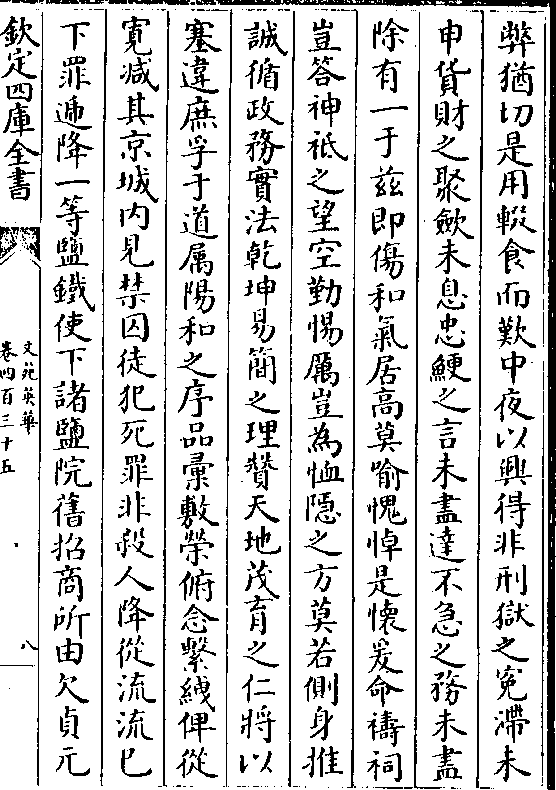 弊猶切是用輟食而歎中夜以興得非刑獄之寃滯未
申貨財之聚斂未息忠鯁之言未盡達不急之務未盡
除有一于兹即傷和氣居高莫喻愧悼是懷爰命禱祠
豈答神祗之望空勤惕厲豈為恤隱之方莫若側身推
誠循政務實法乾坤易簡之理贊天地茂育之仁將以
塞違庶孚于道属陽和之序品彚敷榮俯念繫緤俾從
寛减其京城内見禁囚徒犯死罪非殺人降從流流已
下罪遞降一等鹽鐵使下諸鹽院舊招商所由欠貞元
欽定四庫全書
文苑英華
卷四百三十五
八